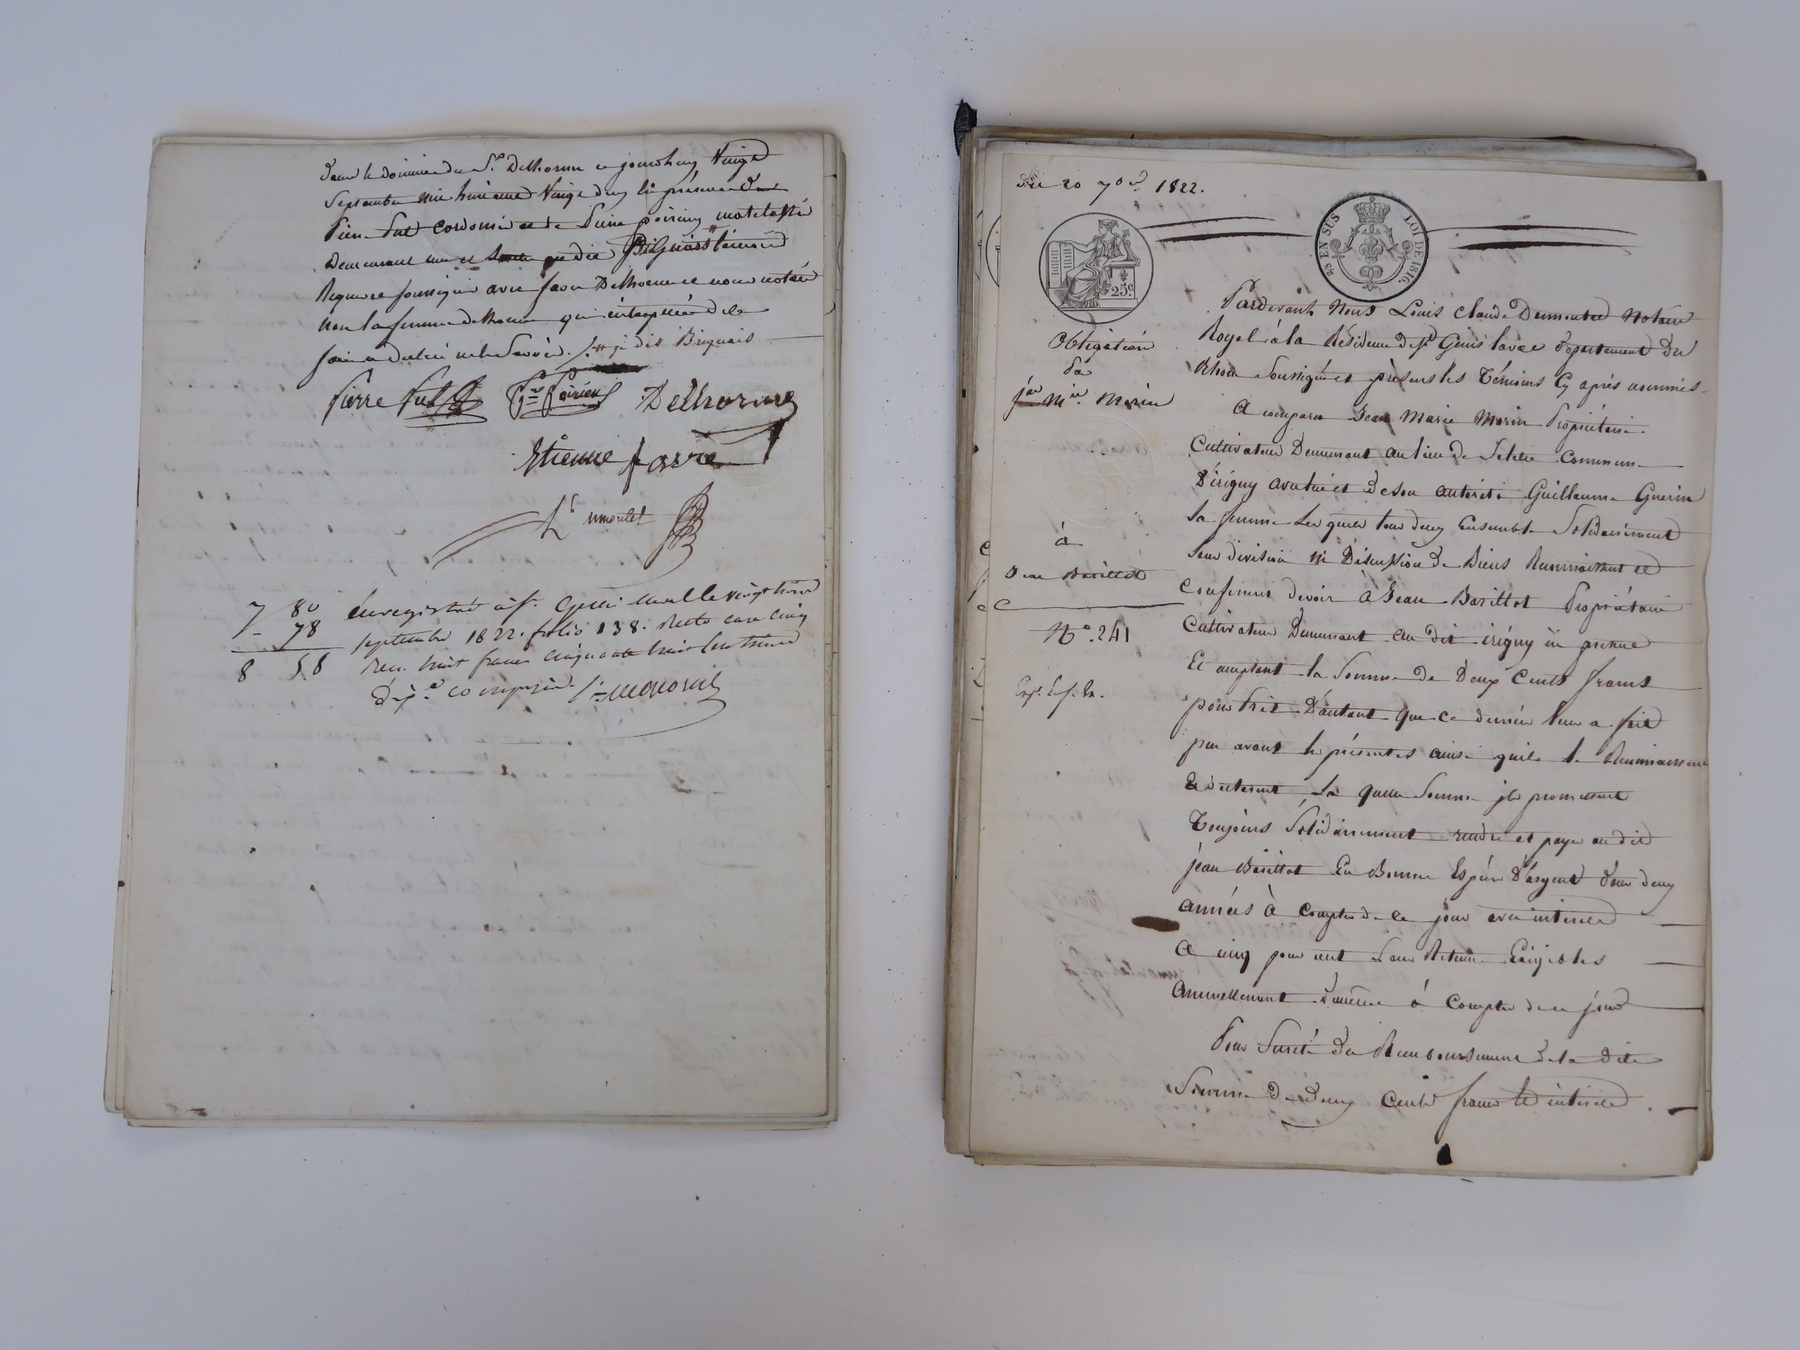 dans le domicile du Sr. Delhorme ce jourdhuy Vingt
Septembre mil huit cent Vingt deux En présence de
Pierre Fat cordonnier et de Pierre poirieux matelassié
Demeurant au dit Brignais témoins
Requis et soussignés avec favre Delhorme et nous notaire
non la femme delhorme qui interpellée de le
faire a declaré ne le Savoir. /. je dis Brignais
Pierre Fat Pre Poirieux Delhorme
Etienne favre
Dumortet
7 80
78
8 58
Enregistré à St. Genis laval le vingt trois
septembre 1822. folio 138. Recto case cinq
Reçu huit francs cinquante huit centimes
Dixe. compris.
Du 20 7bre. 1822.
25 EN SUS LOI DE 1816.
25c.
Obligation
Par
Jn Mie Morin
à
Jean Barillot
No. 241
Pardevant Nous Louis Claude Dumortet Notaire
Royal à la Résidence de St Genis laval département Du
Rhône Soussigné et présents les Témoins Cy après nommés
A comparu Jean Marie Morin Propriétaire
Cultivateur Demeurant au lieu de Commune
D'irigny avec lui et De son autorité Guillaume Guerin
Sa femme Les quels tous deux Ensemble Solidairement
Sans division ni Discussion de Biens Reconnaissent et
Confessent devoir A Jean Barillot Propriétaire
Cultivateur Demeurant au Dit irigny ici présent
Et acceptant la Somme de Deux Cents francs
pour Prêt D'autant que ce dernier leur a fait
par avant les présentes ainsi qu'ils le Reconnaissent
Et déclarent La quelle Somme ils promettent
Toujours Solidairement rendre et payer au dit
jean Barillot En Bonnes Espèces D'argent dans deux
Années à Compter de ce jour avec intérêts
A cinq pour cent Sans Retenue Exigibles
Annuellement à Compter de ce jour
Pour Sureté du Remboursement de la Dite
Somme De Deux Cents francs et intérêts